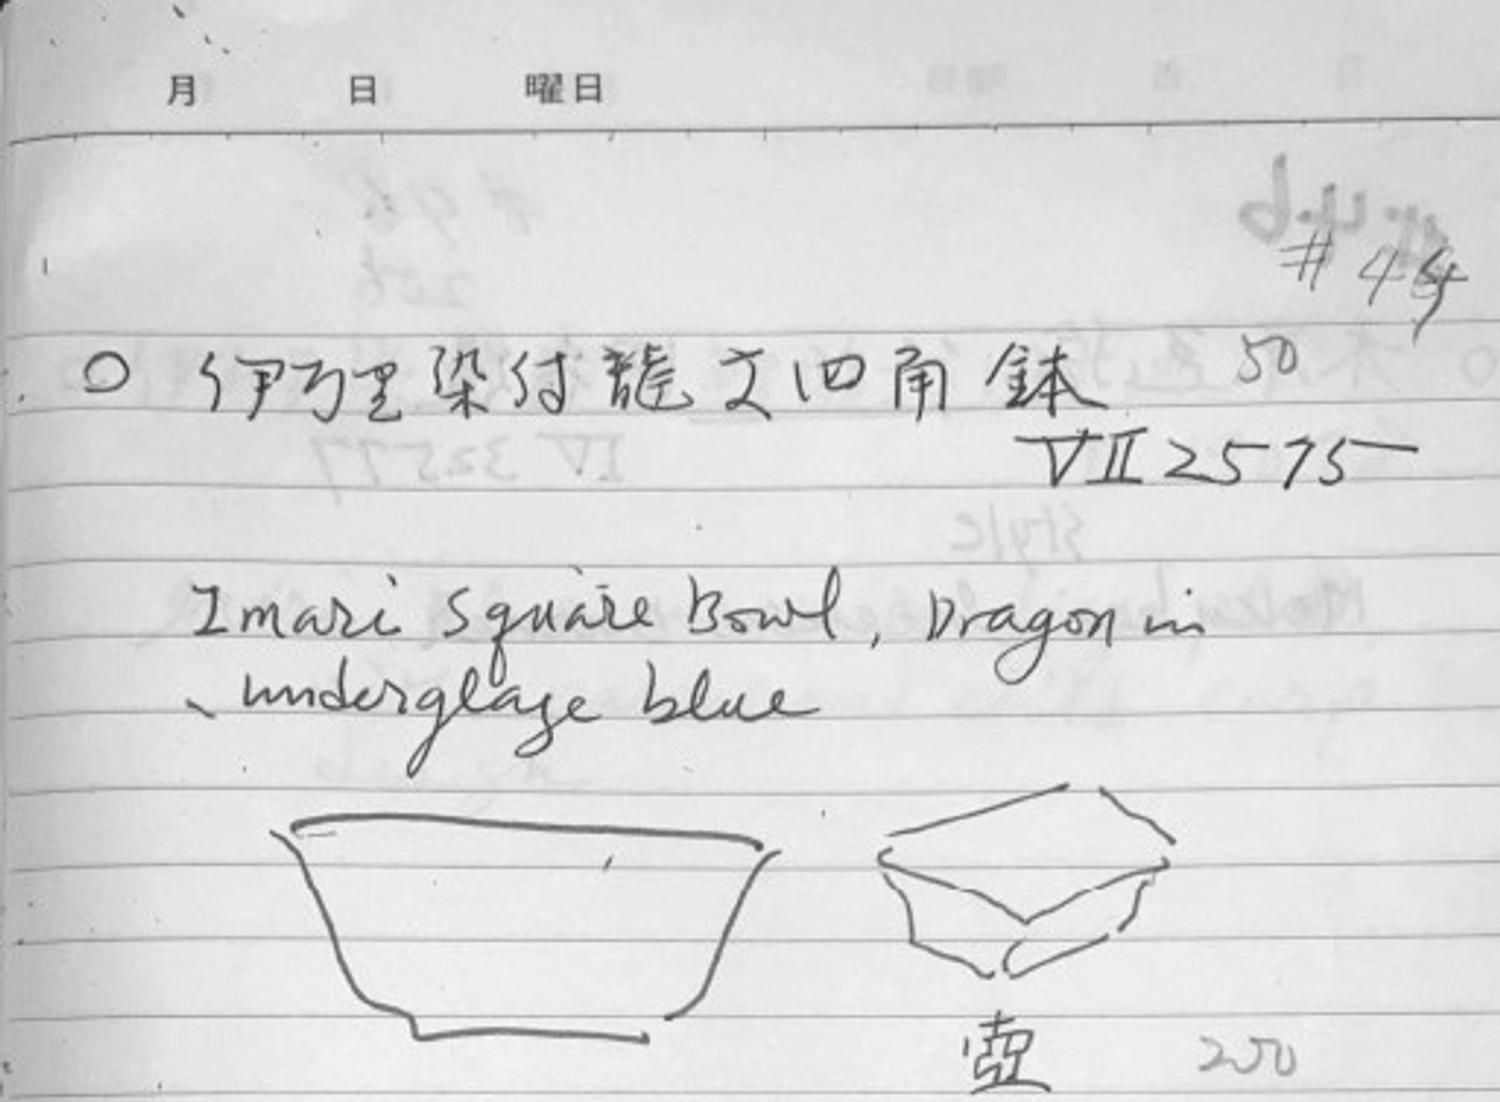 月 日 曜日
# 44
○ 伊万里染付龍文四角鉢 50
VII 2575
Imari Square Bowl, Dragon in
underglaze blue
壺 250